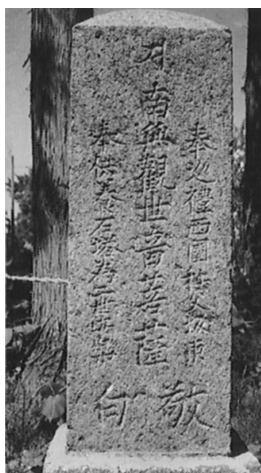 奉巡禮西國秩父坂東
南無觀世音菩薩
奉供養石塔為二世安樂
敬白